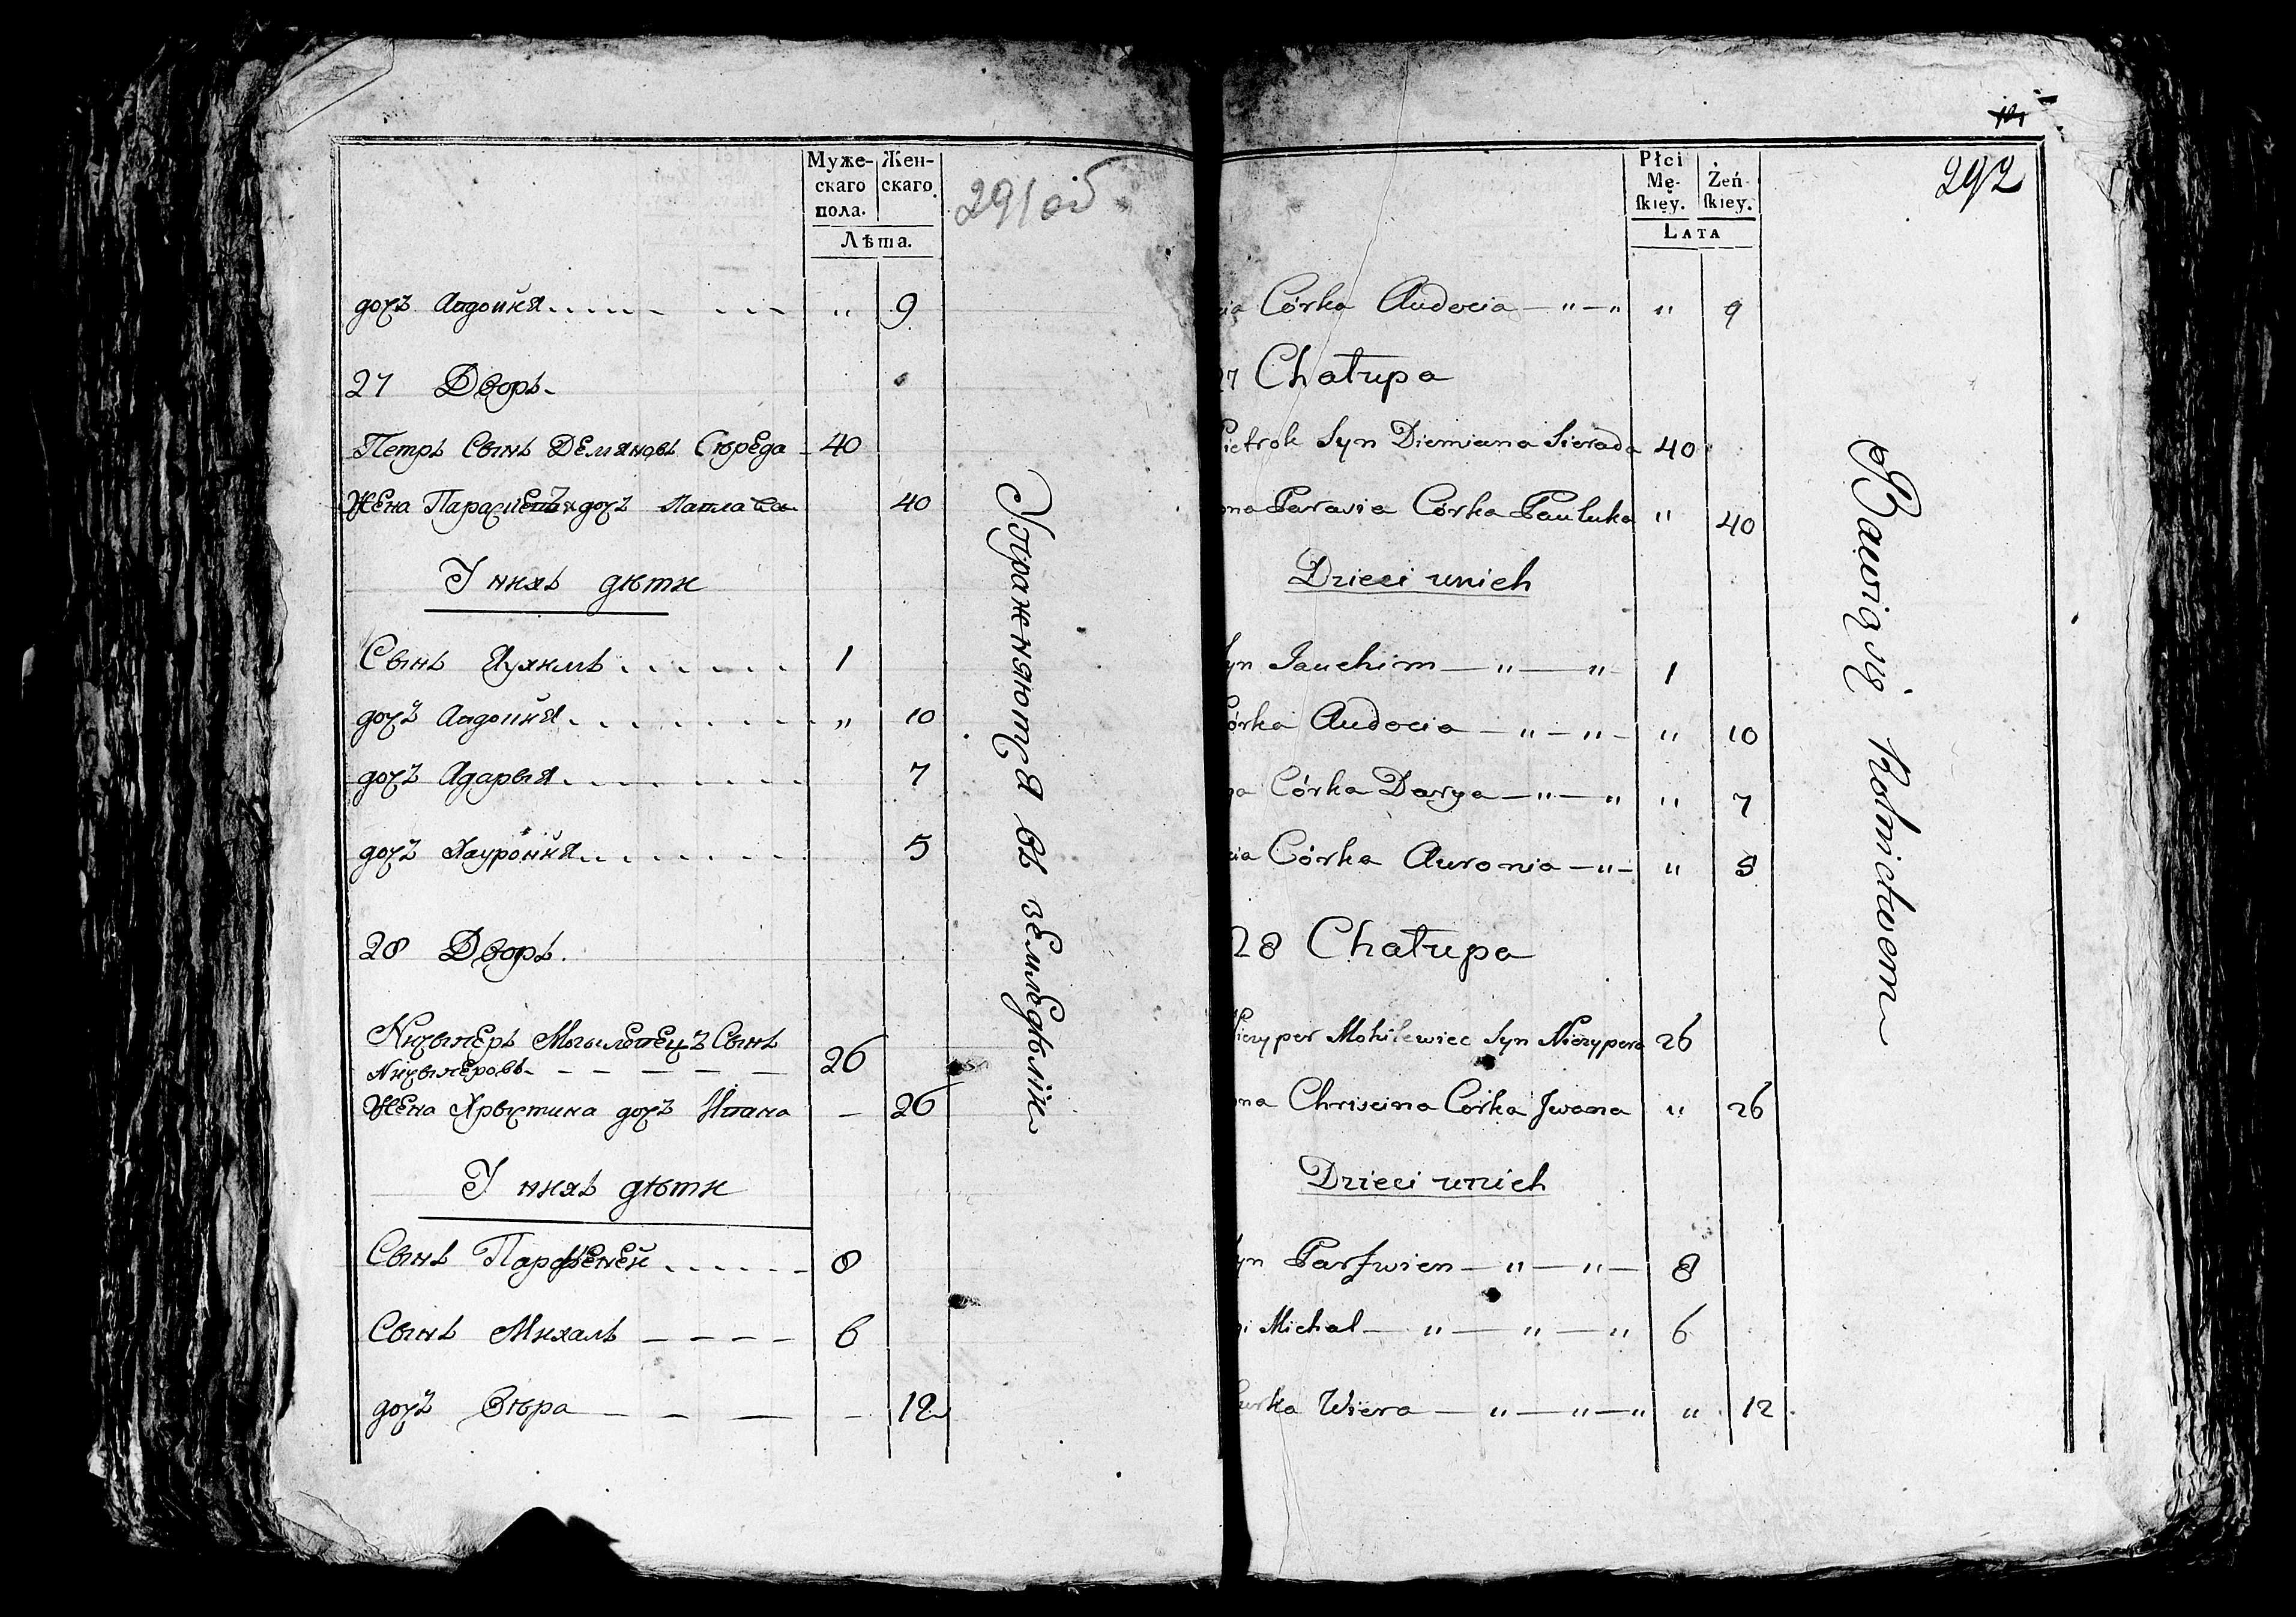 Муже- Жен-
скаго скаго
пола.
Лѣта.
291об
дочъ Авдоцкя 9
27 Дворъ
Петръ Сынъ Демяновъ Серѣда 40
Жена дочъ Павла 40
У нихъ дѣти
Сынъ Яухимъ 1
дочъ Авдоцкя " 10
дочъ Адарыя 7
дочъ Хауронкя 5
28 Дворъ.
Ничыперъ Могилевецъ Сынъ
Ничыперовъ 26
Жена Хрыстина дочъ Ивана 26
У нихъ дѣти
Сынъ Парфеней 8
Сынъ Михалъ 6
дочъ Вѣра 12
Упражняются въ земледѣліи
292
Płci
Mę- Żeń-
ſkiey. ſkiey.
Lata
Córka Audocia — " — " " 9
27 Chałupa
Pietrok Syn Diemiana Sierada 40
Parasia Córka Pauluka " 40
Dzieci unich
Syn Jauchim — " — " 1
Córka Audocia — " — " " 10
Córka Darya — " — " " 7
Córka Auronia — " " 5
28 Chałupa
Niczyper Mohilewiec Syn Niczypera 26
Chriscina Córka Jwana " 26
Dzieci unich
Syn Parfwien — " — " 8
Michal — " — " — " 6
Curka Wiera — " — " — " " 12
Bawią się Rolnictwem